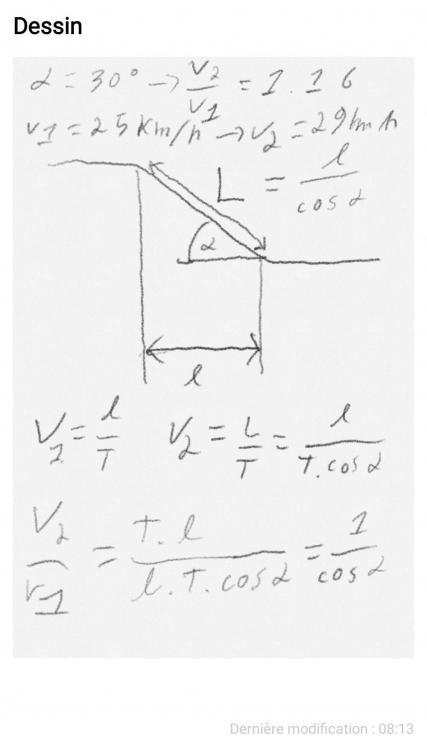 Dessin
α = 30° → V2/V1 = 1.16
V1 = 25 Km/h → V2 = 29 km h
L = l/cos α
α
l
V1 = l/T V2 = L/T = l/T.cos α
V2/V1 = T.l/l.T.cos α = 1/cos α
Dernière modification : 08:13